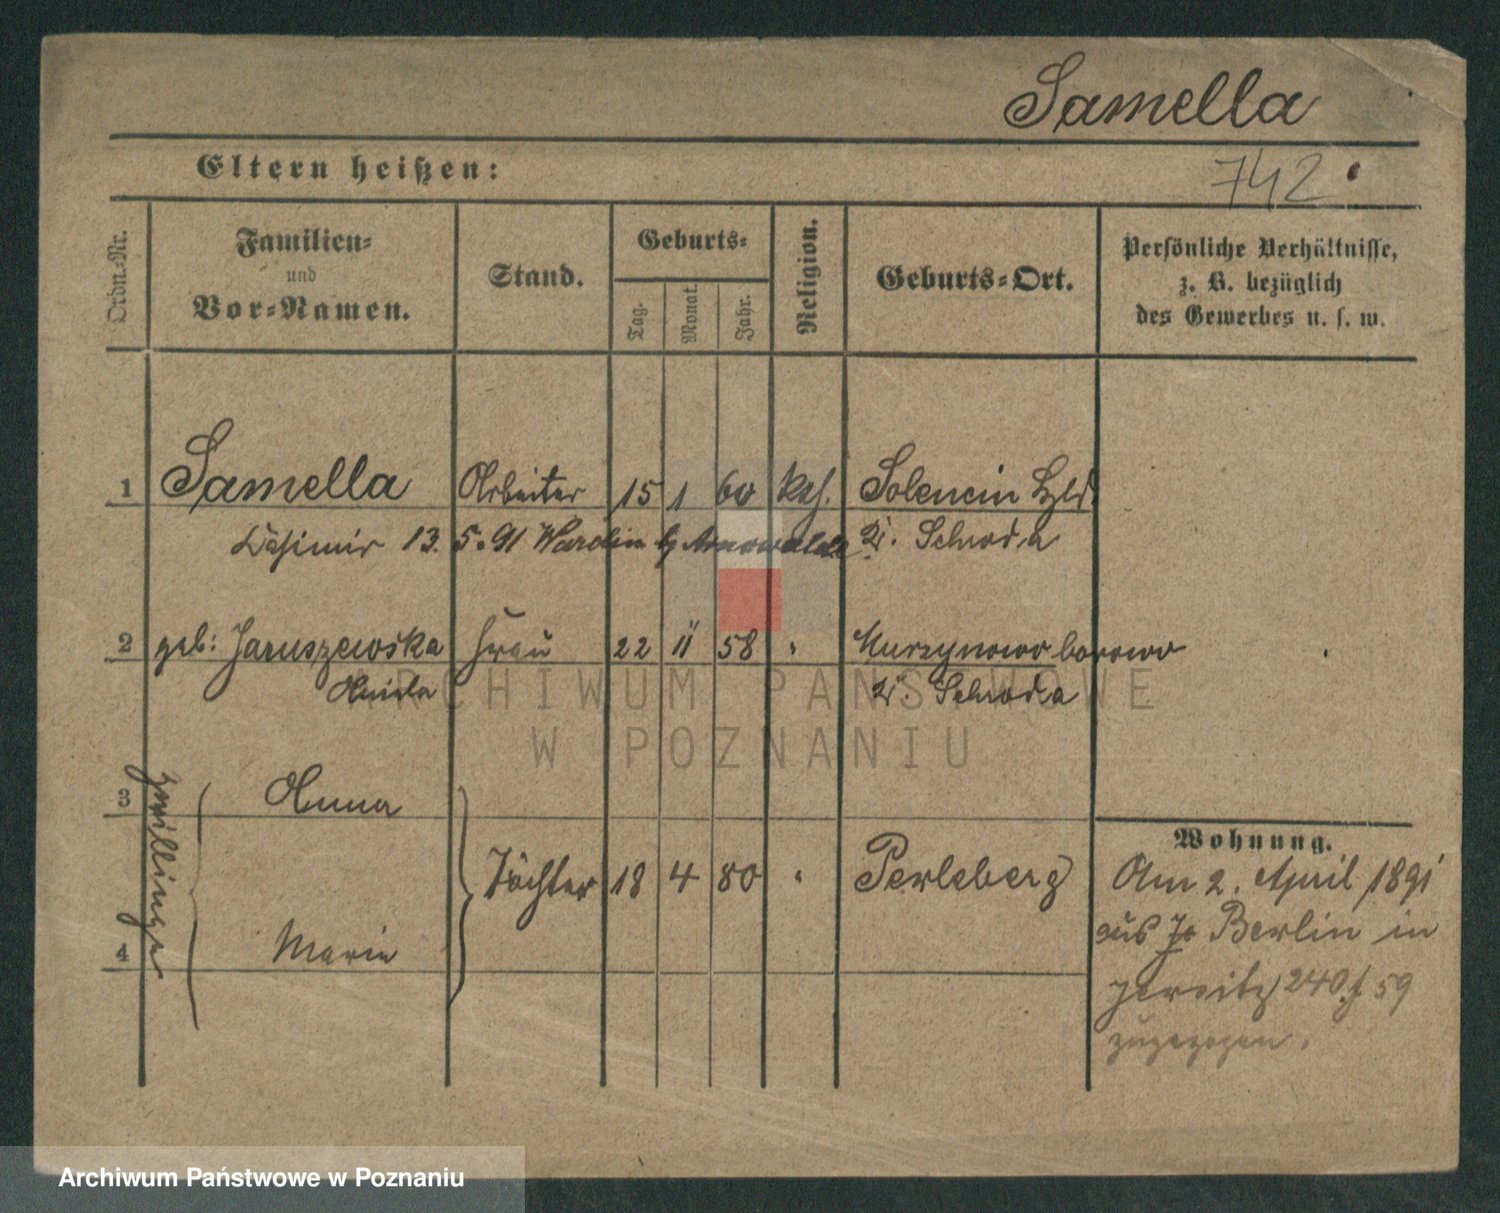 Samella
Eltern heißen:
742
Ordn.-Nr.
Familien-
und
Vor-Namen.
Stand.
Geburts-
Tag.
Monat.
Jahr.
Religion.
Geburts-Ort.
Persönliche Verhältnisse,
z. B. bezüglich
des Gewerbes u. s. w.
1 Samella Arbeiter 15 1 60 kath. Solencin
Casimir 13. 5. 91 Wardin Arnswalde Kr. Schroda
2 geb: Jaruszewska Frau 22 11 58 " Murzynowo borowo
Kr. Schroda
3 Anna
Zwillinge
Töchter 18 4 80 " Perleberg
4 Marie
Wohnung.
Am 2. April 1891
aus Berlin in
Jersitz 240 f 59
zugezogen.
ARCHIWUM PAŃSTWOWE
W POZNANIU
Archiwum Państwowe w Poznaniu